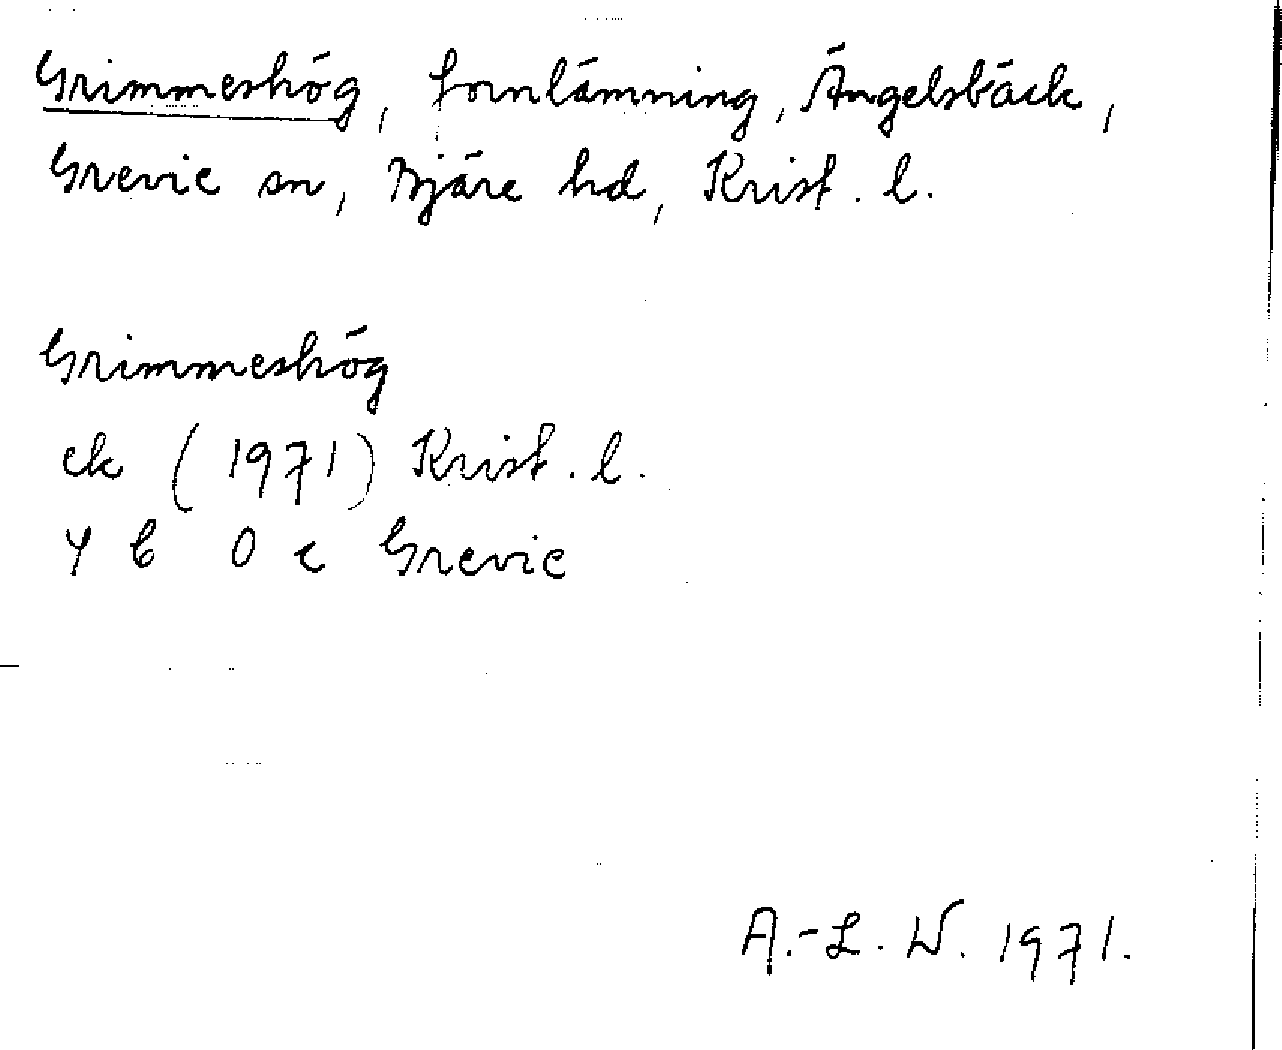 Grimmeshög, fornlämning, Ängelsbäck,
Grevie sn, Bjäre hd, Krist. l.
Grimmeshög
ek (1971) Krist. l.
4 C 0 c Grevie
A.-L. W. 1971.